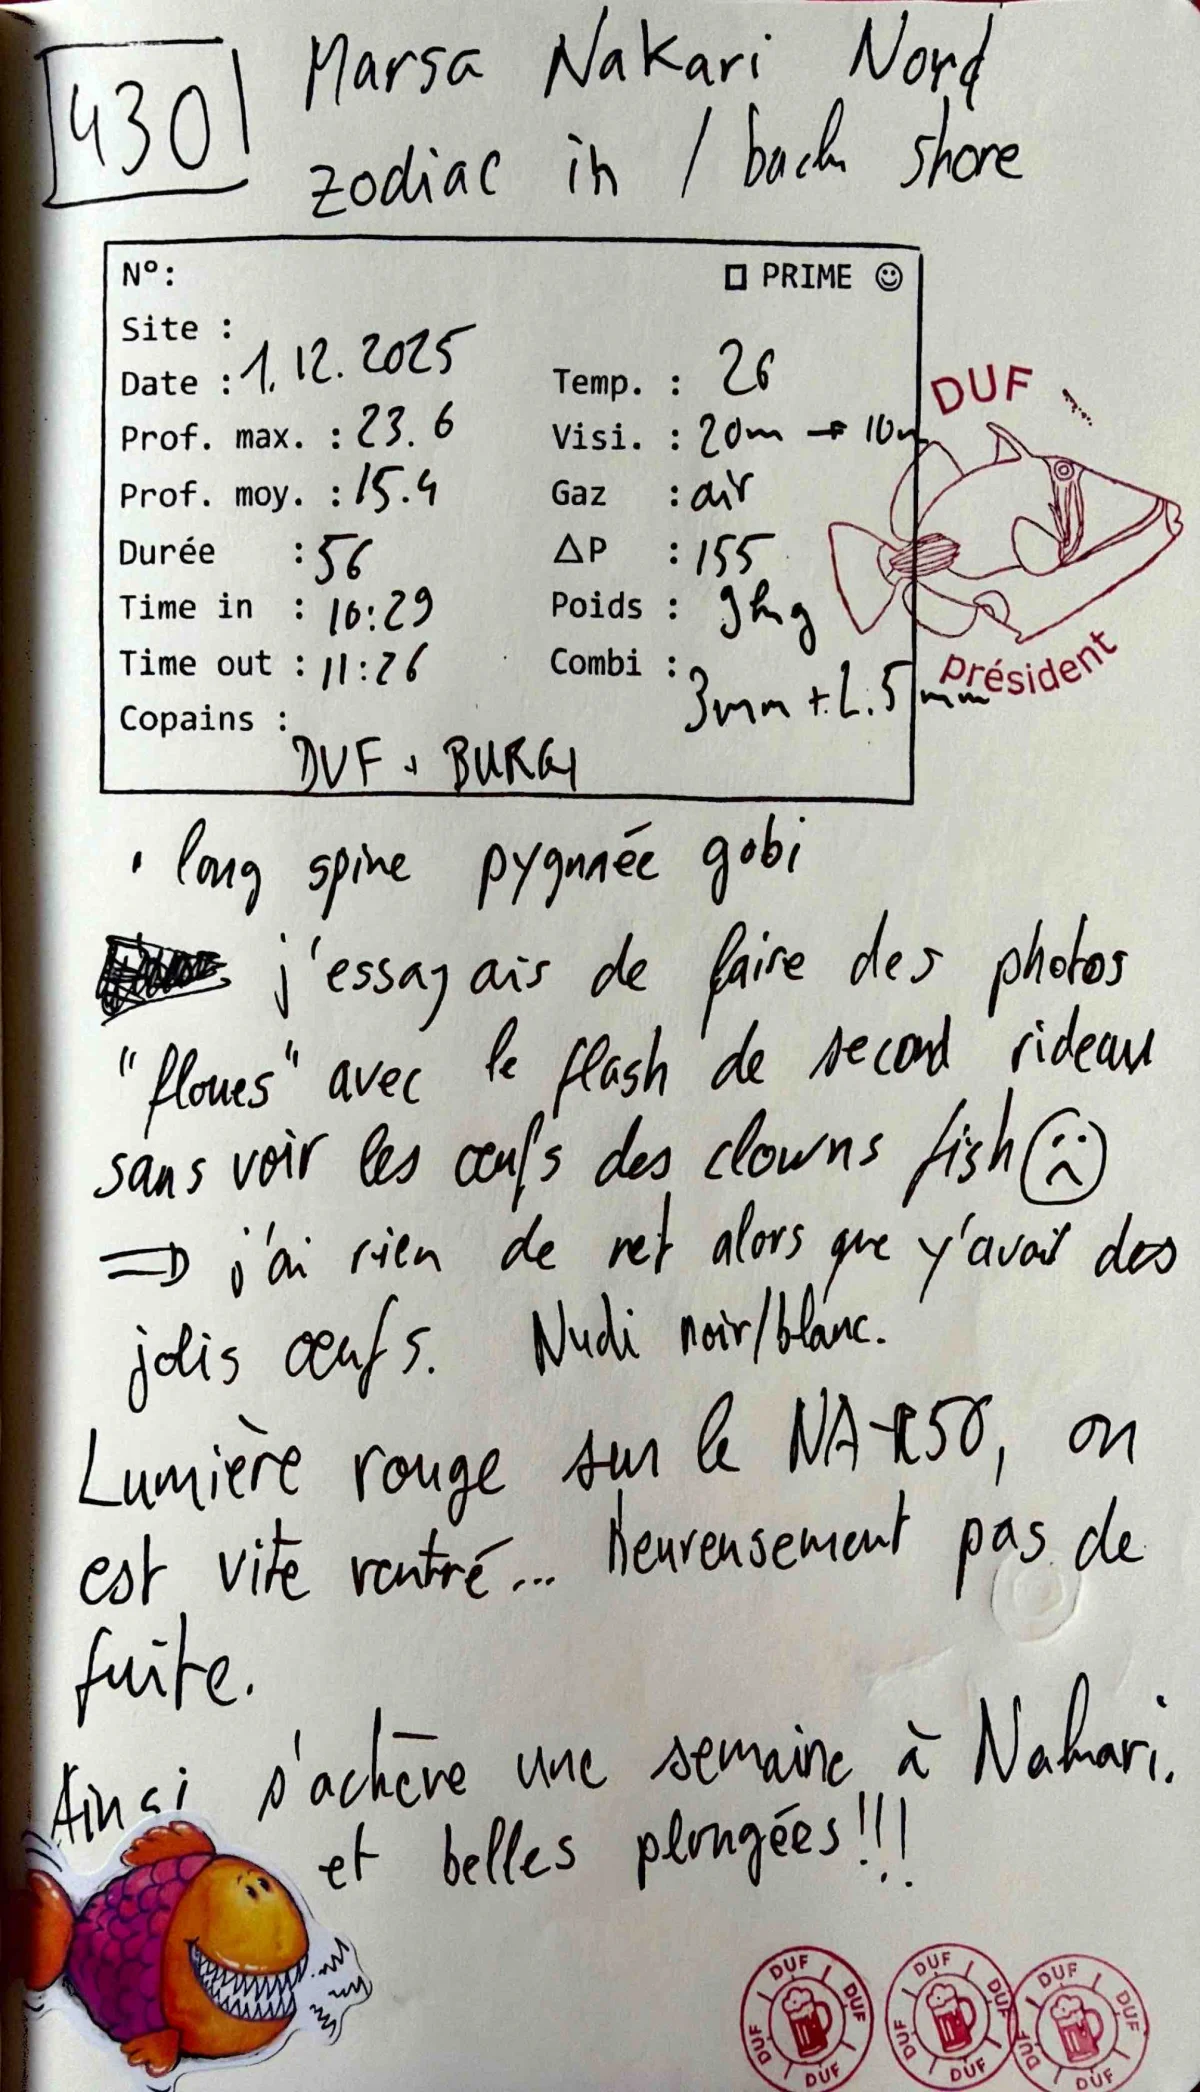 430
Marsa Nakari Nord
zodiac in / back shore
N°: □ PRIME ☺
Site :
Date : 1.12.2025 Temp. : 26
Prof. max. : 23.6 Visi. : 20m → 10m
Prof. moy. : 15.4 Gaz : air
Durée : 56 ΔP : 155
Time in : 10:29 Poids : 9kg
Time out : 11:26 Combi : 3mm + 2.5mm
Copains : DUF + BURGI
DUF
président
• long spine pygmée gobi
j'essayais de faire des photos
"floues" avec le flash de second rideau
sans voir les œufs des clowns fish ☹
⇒ j'ai rien de net alors que y'avait des
jolis œufs. Nudi noir/blanc.
Lumière rouge sur le NA-R50, on
est vite rentré... heureusement pas de
fuite.
Ainsi s'achève une semaine à Nakari.
et belles plongées!!!
DUF DUF DUF DUF
DUF DUF DUF DUF
DUF DUF DUF